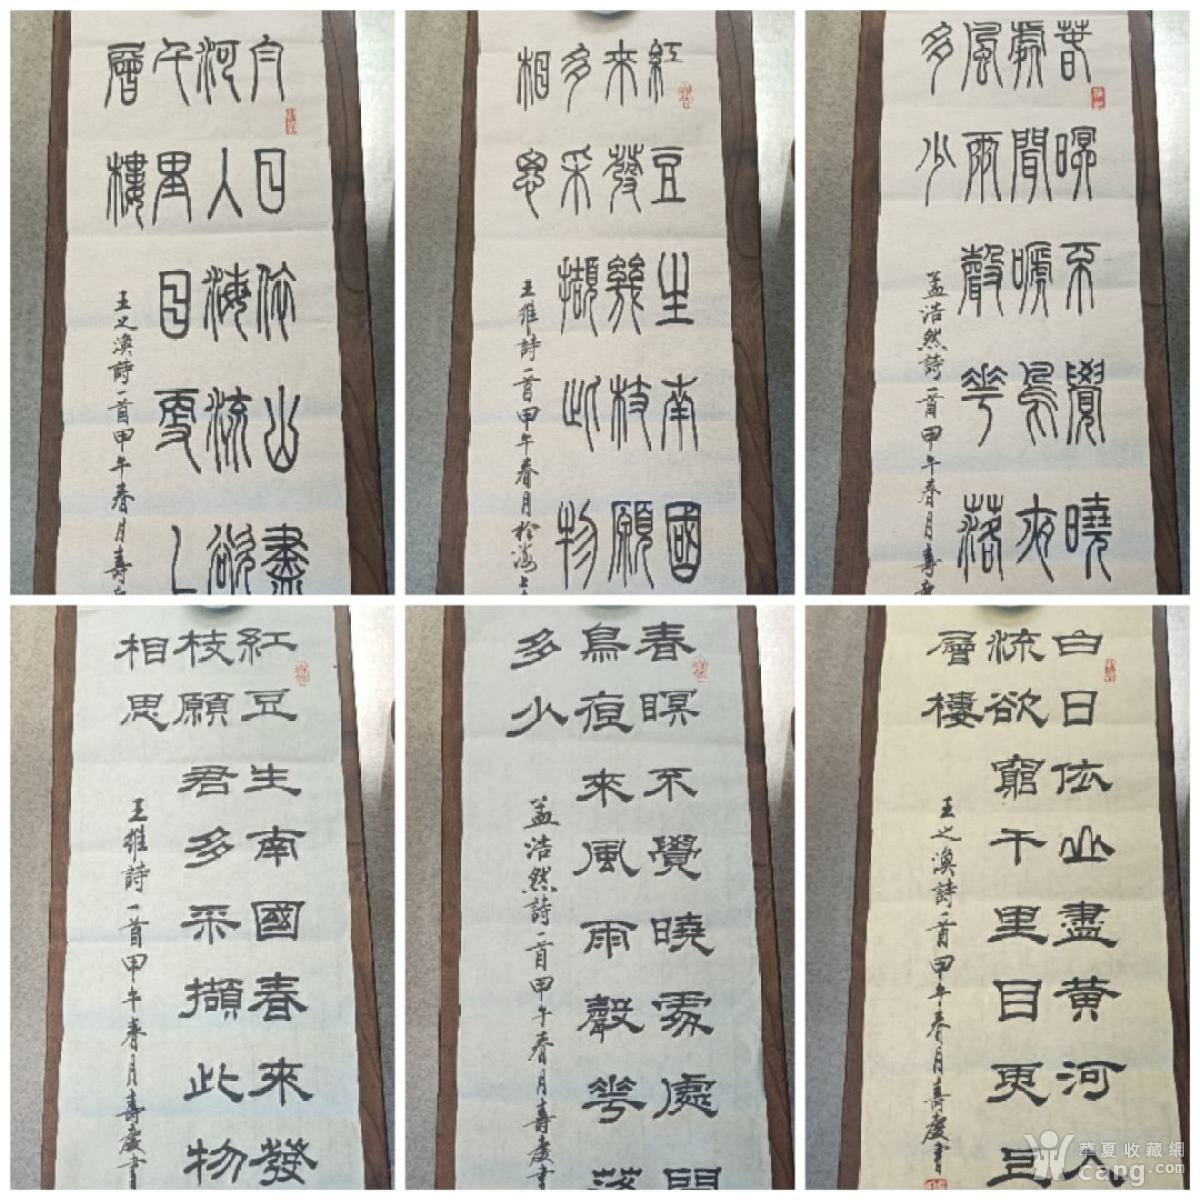 白日依山盡
河入海流欲
千里目更上
層樓
王之渙詩一首甲午春月壽
紅豆生南國
來發幾枝願
多采擷此物
相思
王維詩一首甲午春月於海上
春暝不覺曉
處聞啼鳥夜
風雨聲華落
多少
孟浩然詩一首甲午春月壽
紅豆生南國春來發
枝願君多采擷此物
相思
王維詩一首甲午春月壽慶書
春瞑不覺曉處處聞
鳥夜來風雨聲華落
多少
孟浩然詩一首甲午春月壽慶書
白日依山盡黃河入
流欲窮千里目更上
層樓
王之渙詩一首甲午春月壽慶書
華夏收藏網
cang.com